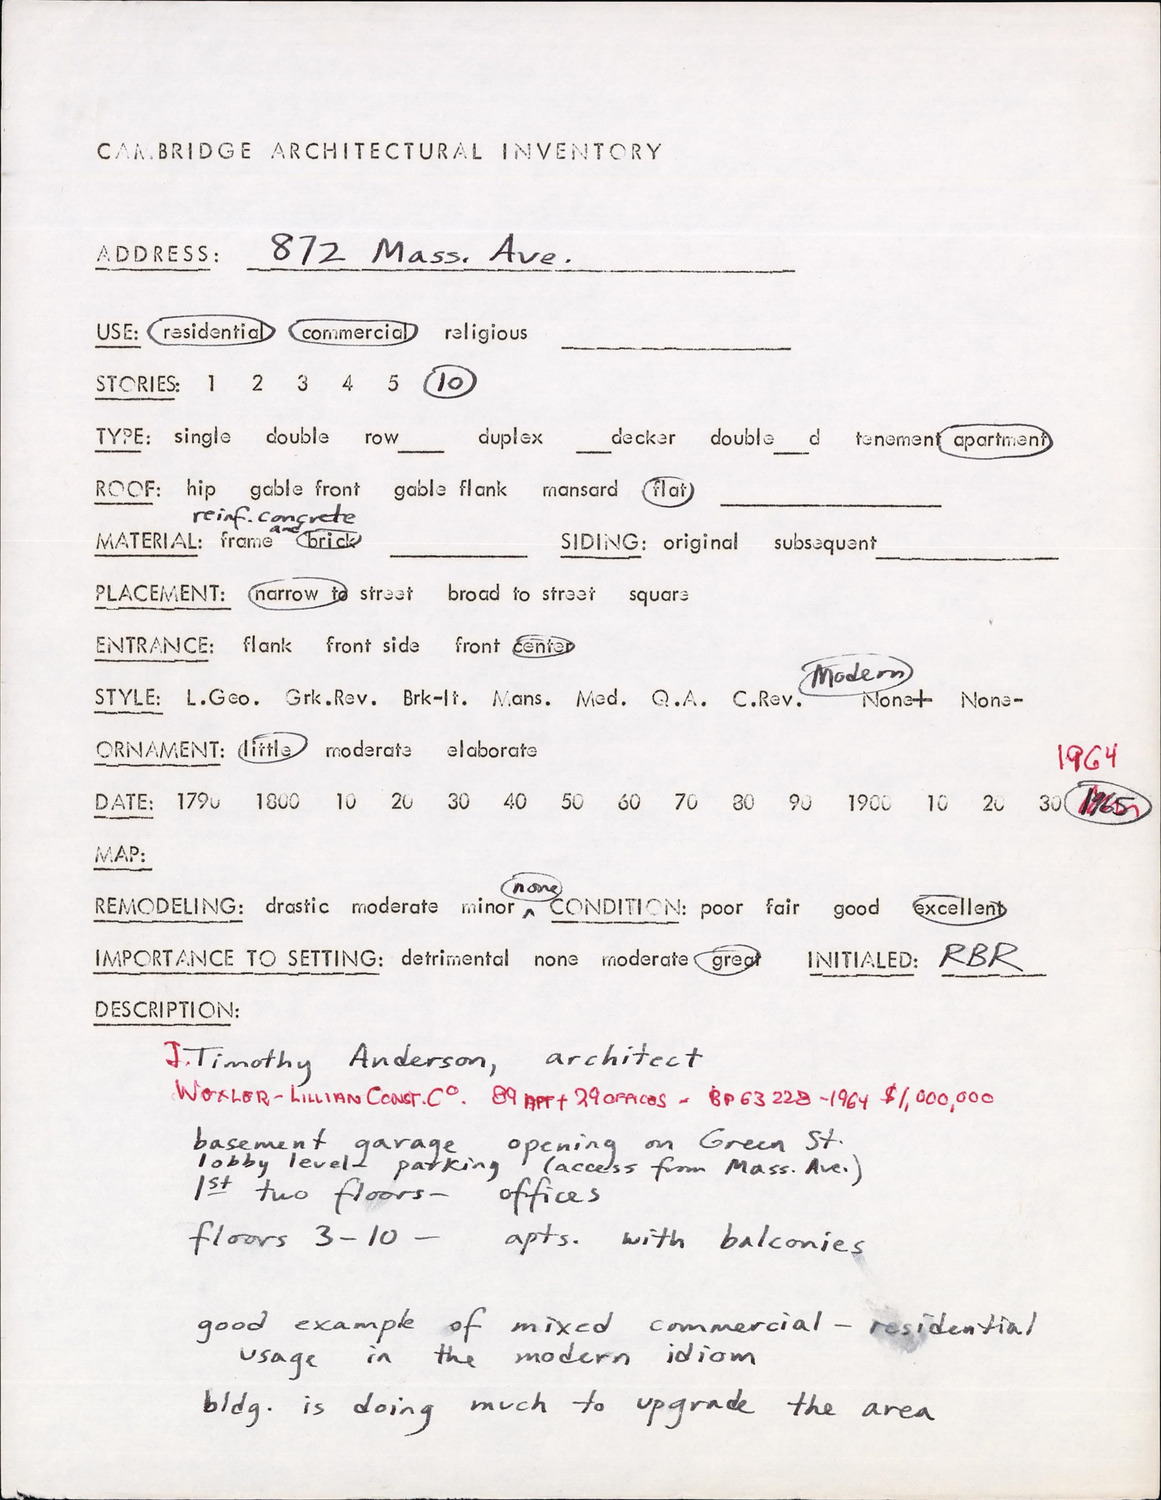 CAMBRIDGE ARCHITECTURAL INVENTORY
ADDRESS: 872 Mass. Ave.
USE: residential commercial religious
STORIES: 1 2 3 4 5 10
TYPE: single double row___ duplex ___decker double___d tenement apartment
ROOF: hip gable front gable flank mansard flat
reinf. concrete
MATERIAL: frame and brick SIDING: original subsequent
PLACEMENT: narrow to street broad to street square
ENTRANCE: flank front side front center
Modern
STYLE: L.Geo. Grk.Rev. Brk-It. Mans. Med. Q.A. C.Rev. None+ None-
ORNAMENT: little moderate elaborate
1964
DATE: 1790 1800 10 20 30 40 50 60 70 80 90 1900 10 20 30 1965
MAP:
none
REMODELING: drastic moderate minor ^ CONDITION: poor fair good excellent
IMPORTANCE TO SETTING: detrimental none moderate great INITIALED: RBR
DESCRIPTION:
J. Timothy Anderson, architect
WEXLER-LILLIAN CONST. Co. 89 APT + 29 OFFICES - BP 63228 - 1964 $1,000,000
basement garage opening on Green St.
lobby level - parking (access from Mass. Ave.)
1st two floors - offices
floors 3-10 - apts. with balconies
good example of mixed commercial - residential
usage in the modern idiom
bldg. is doing much to upgrade the area